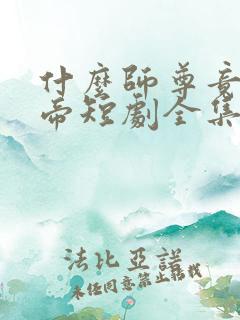 什麼師尊竟
帝短劇全集
法比亞諾
未經同意禁止轉載